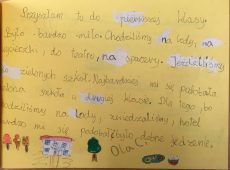 Przyszłam tu do pierwszej klasy.
Było bardzo miło. Chodziliśmy na lody, na
wycieczki, do teatru, na spacery. Jeździliśmy
do zielonych szkół. Najbardziej mi się podobała
zielona szkoła w drugiej klasie. Dla tego, bo
chodziliśmy na lody, zwiedzaliśmy, hotel
bardzo mi się podobał było dobre jedzenie.
Ola C.